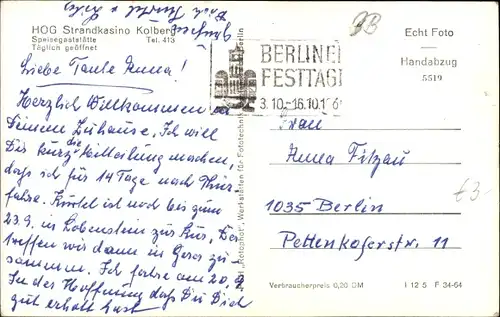 HOG Strandkasino Kolberg
Speisegaststätte
Täglich geöffnet Tel. 413
Liebe Tante Anna!
Herzlich Willkommen in
Deinem Zuhause. Ich will
Dir kurz die Mitteilung machen,
daß ich für 14 Tage nach Thür.
fahre. Kurtel ist noch bis zum
23.9. in Lobenstein zur Kur. Da
treffen wir dann in Gera zu-
sammen. Ich fahre am 20.9.
In der Hoffnung daß Du Dich
gut erholt hast
BERLINER
FESTTAGE
3.10.-16.10.
Echt Foto
Handabzug
5519
Frau
Anna Fitzau
1035 Berlin
Pettenkoferstr. 11
£3-
Verbraucherpreis 0,20 DM I 12 5 F 34-64